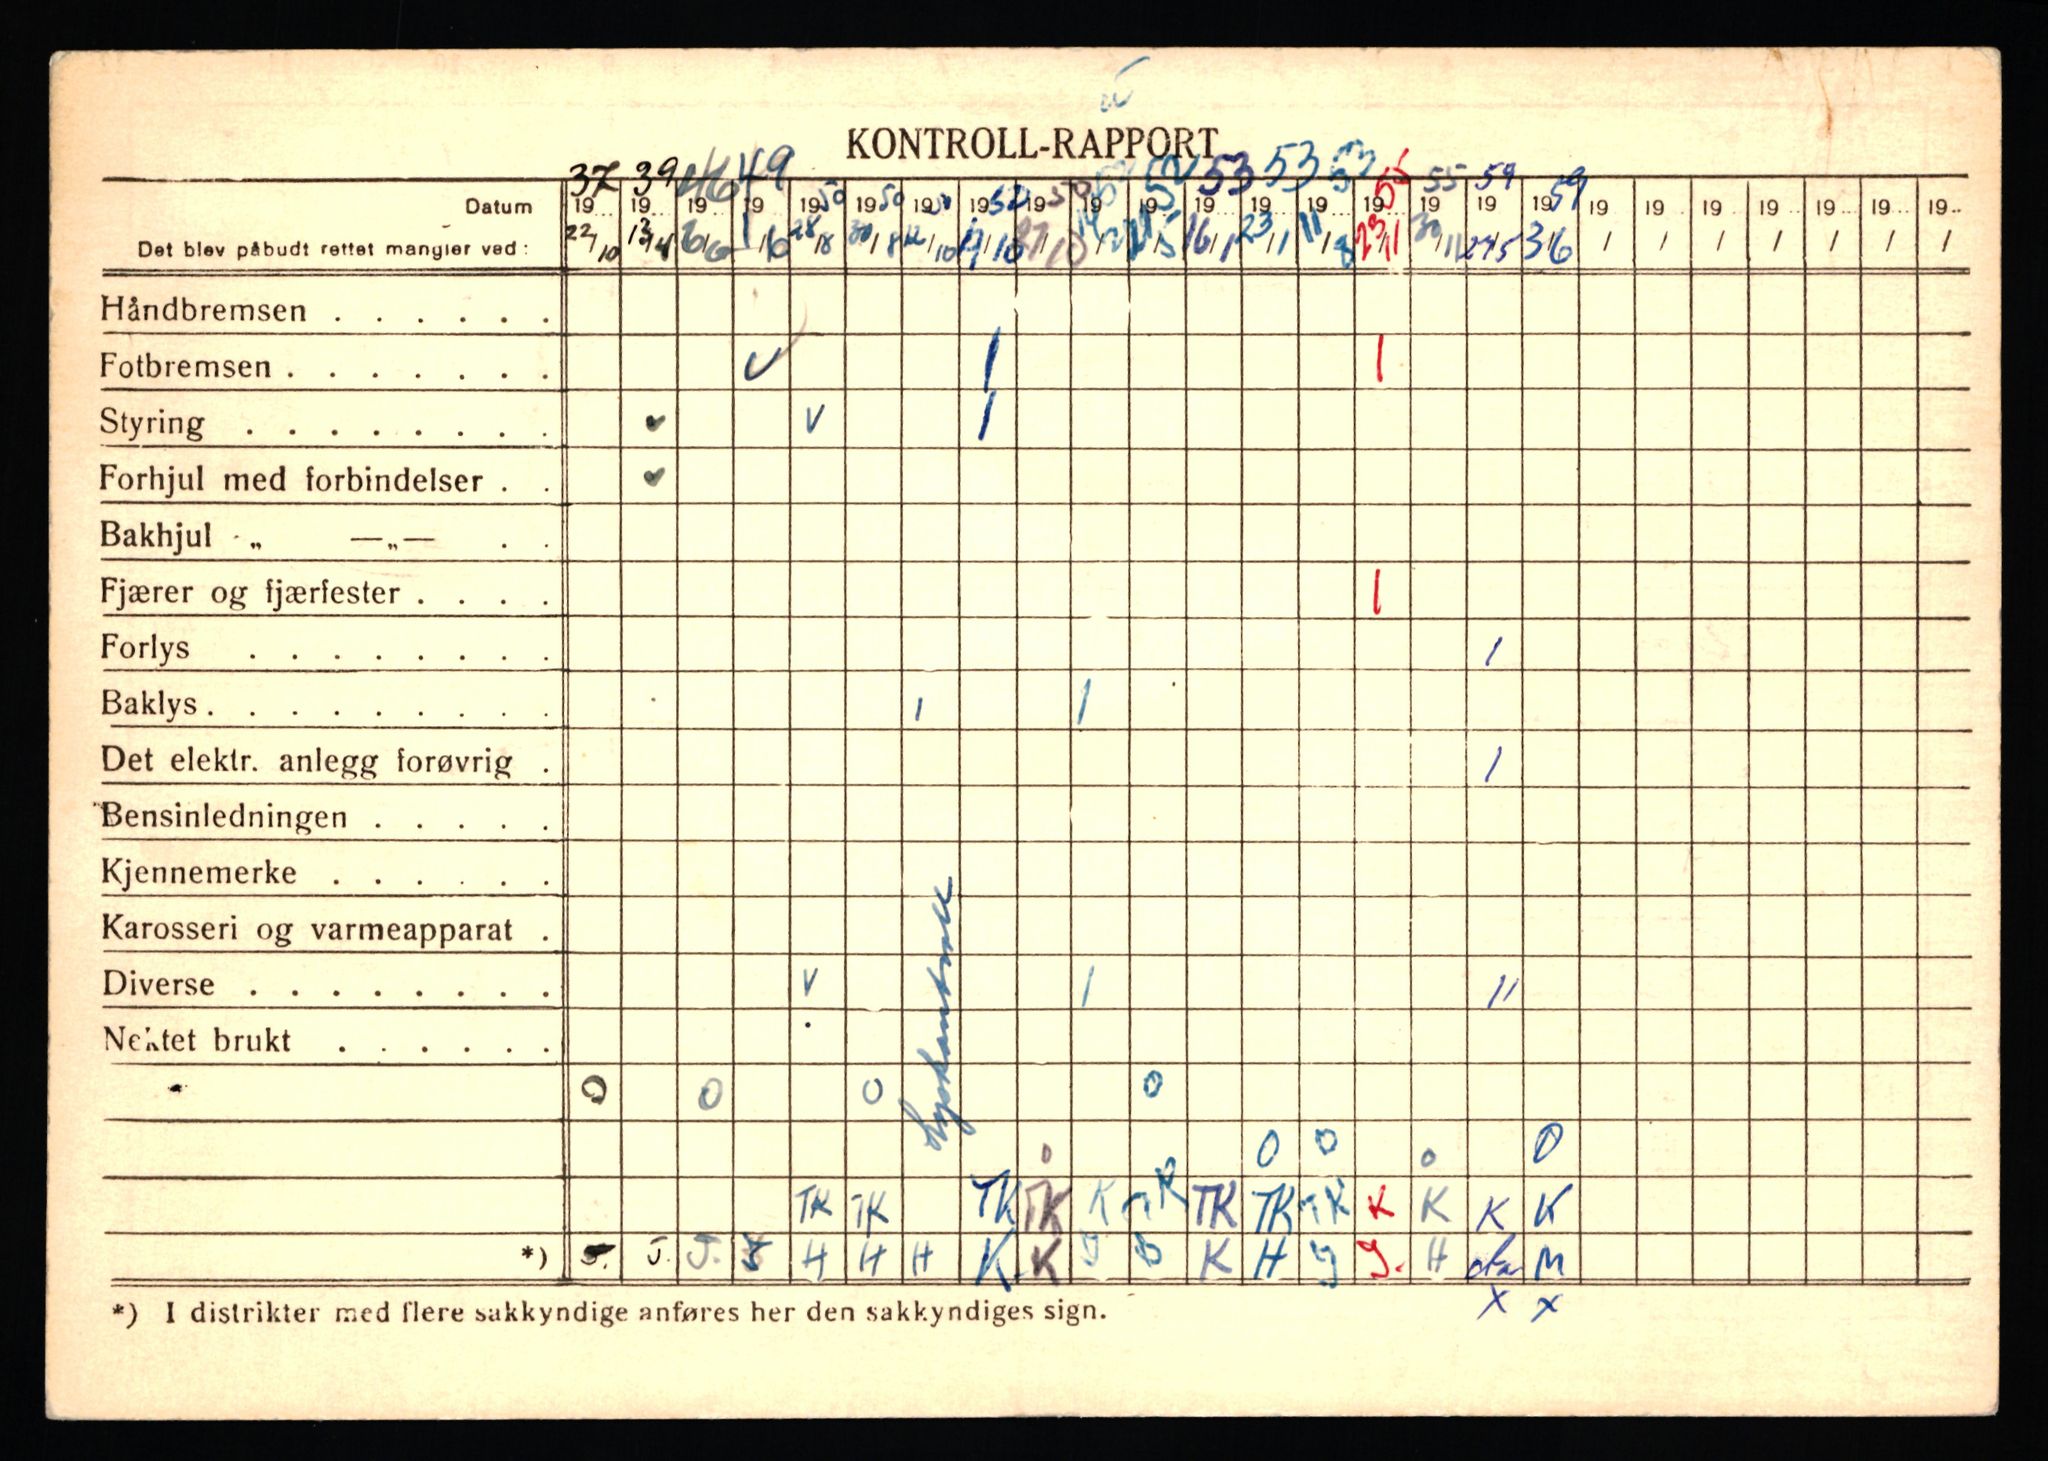 KONTROLL-RAPPORT
37 39 46 49 50 50 50 50 52 52 53 53 53 55 55 59 59
Datum 19 19 19 19 19 19 19 19 19 19 19 19 19 19 19 19 19 19 19 19 19 19 19 19 19
Det blev påbudt rettet mangler ved: 22/10 13/4 6/6 1/6 28/8 30/8 12/10 19/10 27/10 21/5 16/1 23/1 11/8 23/11 30/11 27/5 3/6 / / / / / / /
Håndbremsen . . . . . .
Fotbremsen . . . . . . . V | |
Styring . . . . . . . . v v |
Forhjul med forbindelser . . v
Bakhjul „ —„— . .
Fjærer og fjærfester . . . . |
Forlys . . . . . . . . |
Baklys . . . . . . . . . | |
Det elektr. anlegg forøvrig . |
Bensinledningen . . . . .
Kjennemerke . . . . . .
Karosseri og varmeapparat .
Diverse . . . . . . . . v | 11
Nektet brukt . . . . . .
Lyskontroll
O O O O
o O O o O
TK TK TK TK K TK TK TK TK K K K K
*) J. J. J. J H H H K K J K H J J. H M
x x
*) I distrikter med flere sakkyndige anføres her den sakkyndiges sign.